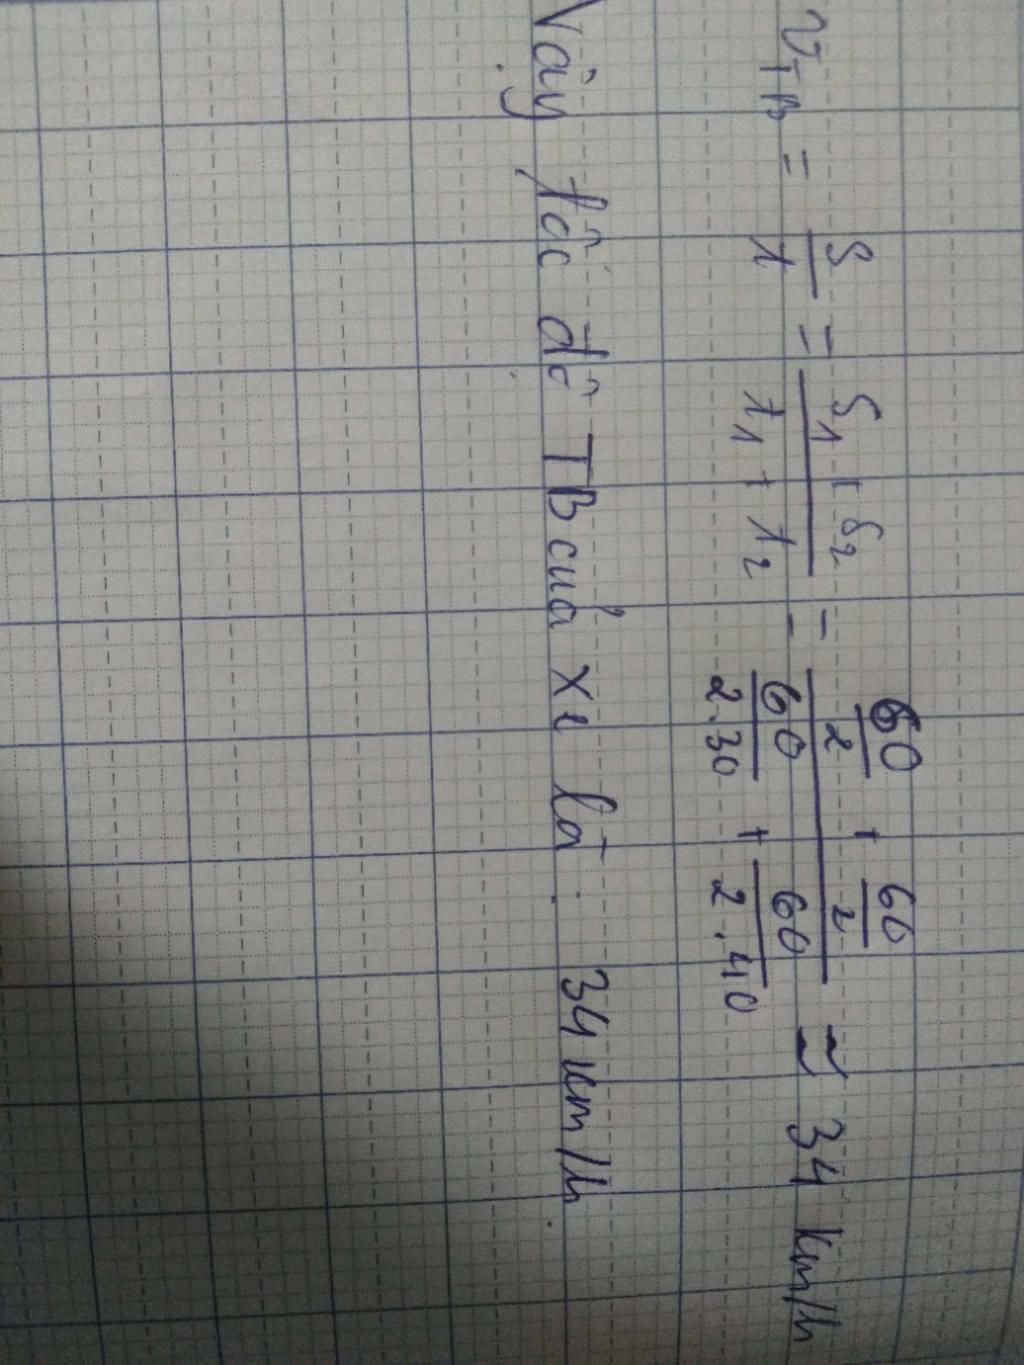 v_TB = S/t = (S₁ + S₂)/(t₁ + t₂) = (60/2 + 60/2)/(60/2.30 + 60/2.40) ≈ 34 km/h
Vậy tốc độ TB của xe là : 34 km/h.